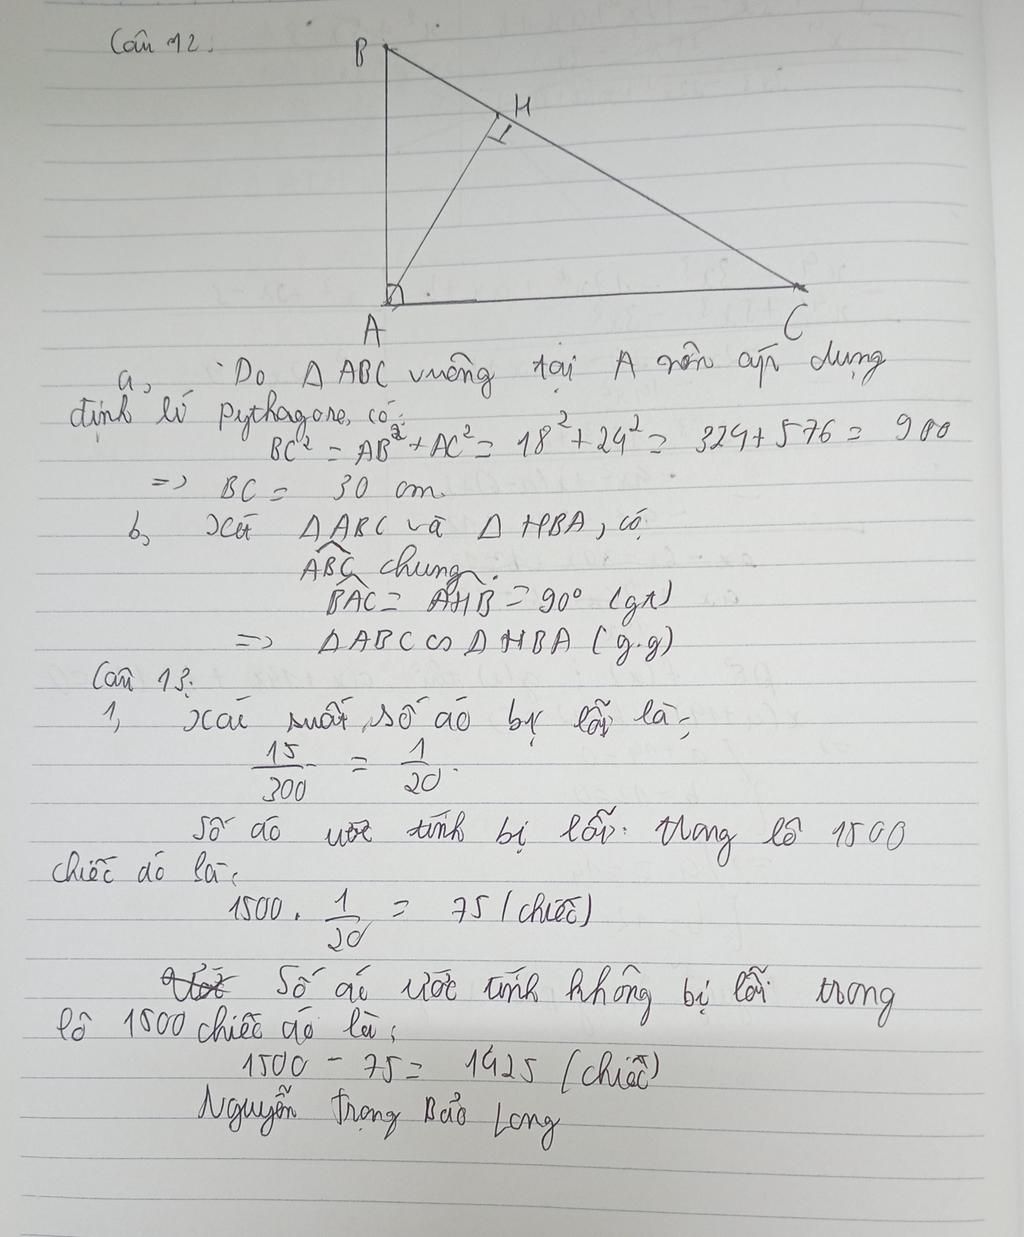 Câu 12:
B
H
A
C
a, Do Δ ABC vuông tại A nên áp dụng
định lí pythagore, có:
BC² = AB² + AC² = 18² + 24² = 324 + 576 = 900
=> BC = 30 cm.
b, Xét Δ ABC và Δ HBA, có
ABC chung.
BAC = AHB = 90° (gt)
=> Δ ABC ∽ Δ HBA (g.g)
Câu 13:
1, Xác suất số áo bị lỗi là:
15/300 = 1/20.
Số áo ước tính bị lỗi trong lô 1500
chiếc áo là:
1500 . 1/20 = 75 (chiếc)
Số áo ước tính không bị lỗi trong
lô 1500 chiếc áo là:
1500 - 75 = 1425 (chiếc)
Nguyễn Trọng Bảo Long